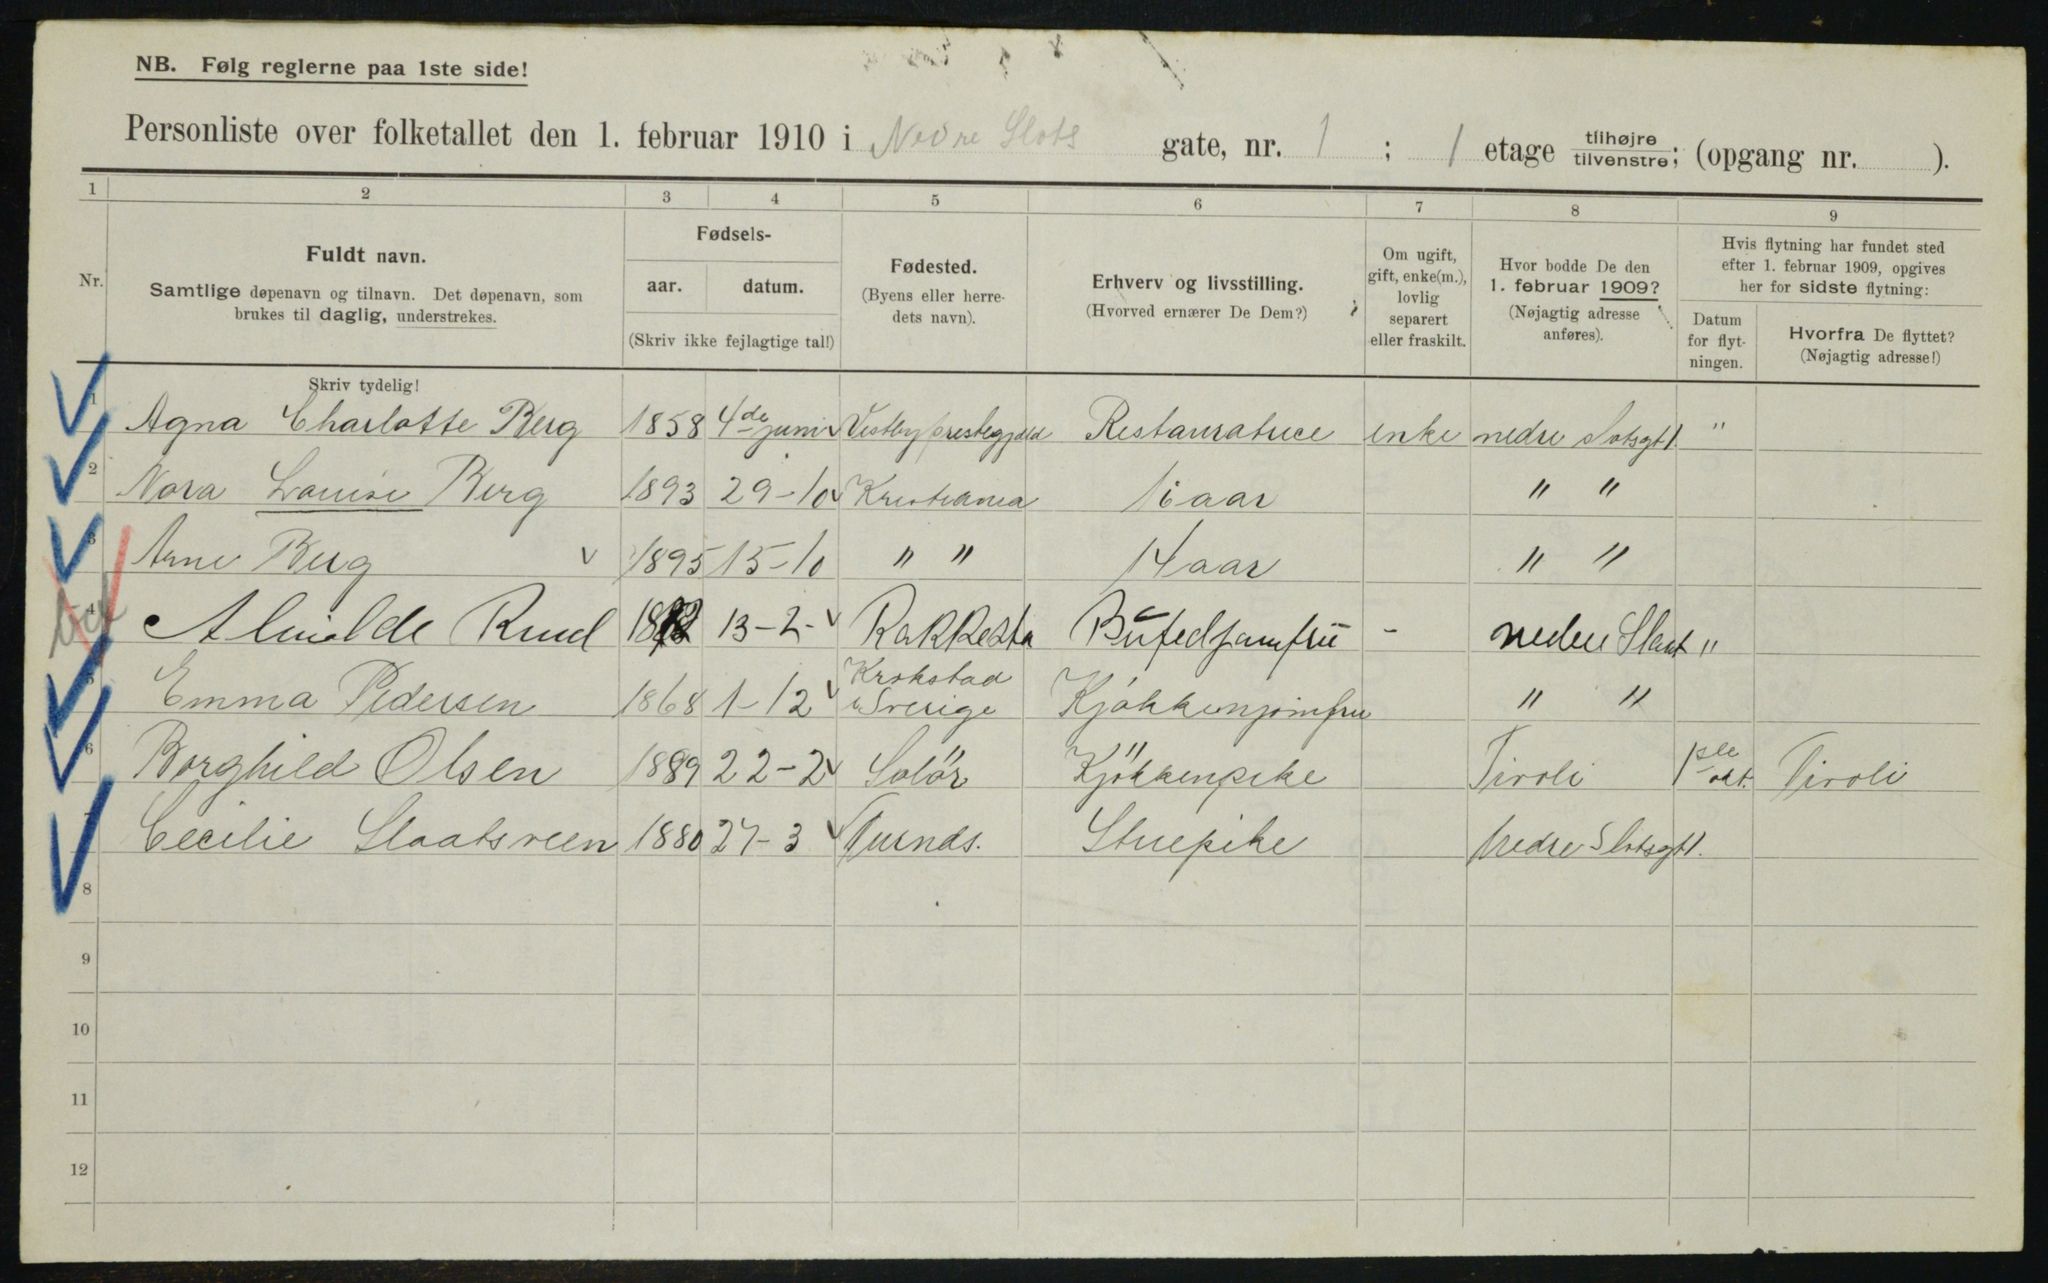 NB. Følg reglerne paa 1ste side!
Personliste over folketallet den 1. februar 1910 i Nedre Slots gate, nr. 1 ; 1 etage tilhøjre tilvenstre; (opgang nr. ).
1 2 3 4 5 6 7 8 9
Nr.
Fuldt navn.
Samtlige døpenavn og tilnavn. Det døpenavn, som
brukes til daglig, understrekes.
Skriv tydelig!
Fødsels-
aar. datum.
(Skriv ikke fejlagtige tal!)
Fødested.
(Byens eller herre-
dets navn).
Erhverv og livsstilling.
(Hvorved ernærer De Dem?)
Om ugift,
gift, enke(m.),
lovlig
separert
eller fraskilt.
Hvor bodde De den
1. februar 1909?
(Nøjagtig adresse
anføres).
Hvis flytning har fundet sted
efter 1. februar 1909, opgives
her for sidste flytning:
Datum
for flyt-
ningen.
Hvorfra De flyttet?
(Nøjagtig adresse!)
1 Agna Charlotte Berg 1858 4de juni Vestby prestegjæld Restauratrice enke nedre Slotsgt 1. "
2 Nora Louise Berg 1893 29-10 Kristiania 16 aar " "
3 Arne Berg 1895 15-10 " " 14 aar " "
4 Ruud 13-2- Rakkesta Bufedjomfru - nedre Slost "
5 Emma Pedersen 1868 1-12 Krokstad i Sverige Kjøkkenjomfru " "
6 Borghild Olsen 1889 22-2 Solör Kjökkenpike Tivoli 1ste okt. Tivoli
7 Cecilie Slaatsveen 1880 27-3 Furnds. Stuepike Nedre Slotsgt 1.
8
9
10
11
12